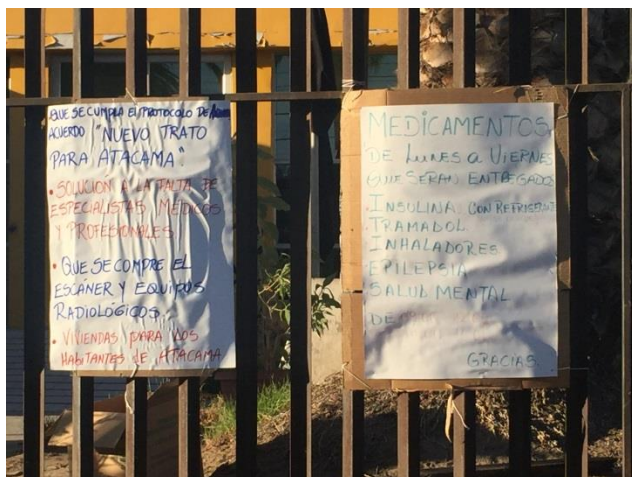 QUE SE CUMPLA EL PROTOCOLO DE
ACUERDO "NUEVO TRATO
PARA ATACAMA".
• SOLUCIÓN A LA FALTA DE
ESPECIALISTAS MÉDICOS
Y PROFESIONALES
• QUE SE COMPRE EL
ESCÁNER Y EQUIPOS
RADIOLÓGICOS.
• VIVIENDAS PARA LOS
HABITANTES DE ATACAMA
MEDICAMENTOS
DE LUNES A VIERNES
QUE SERAN ENTREGADOS
INSULINA CON REFRIGERANTE
TRAMADOL
INHALADORES
EPILEPSIA
SALUD MENTAL
DE
GRACIAS